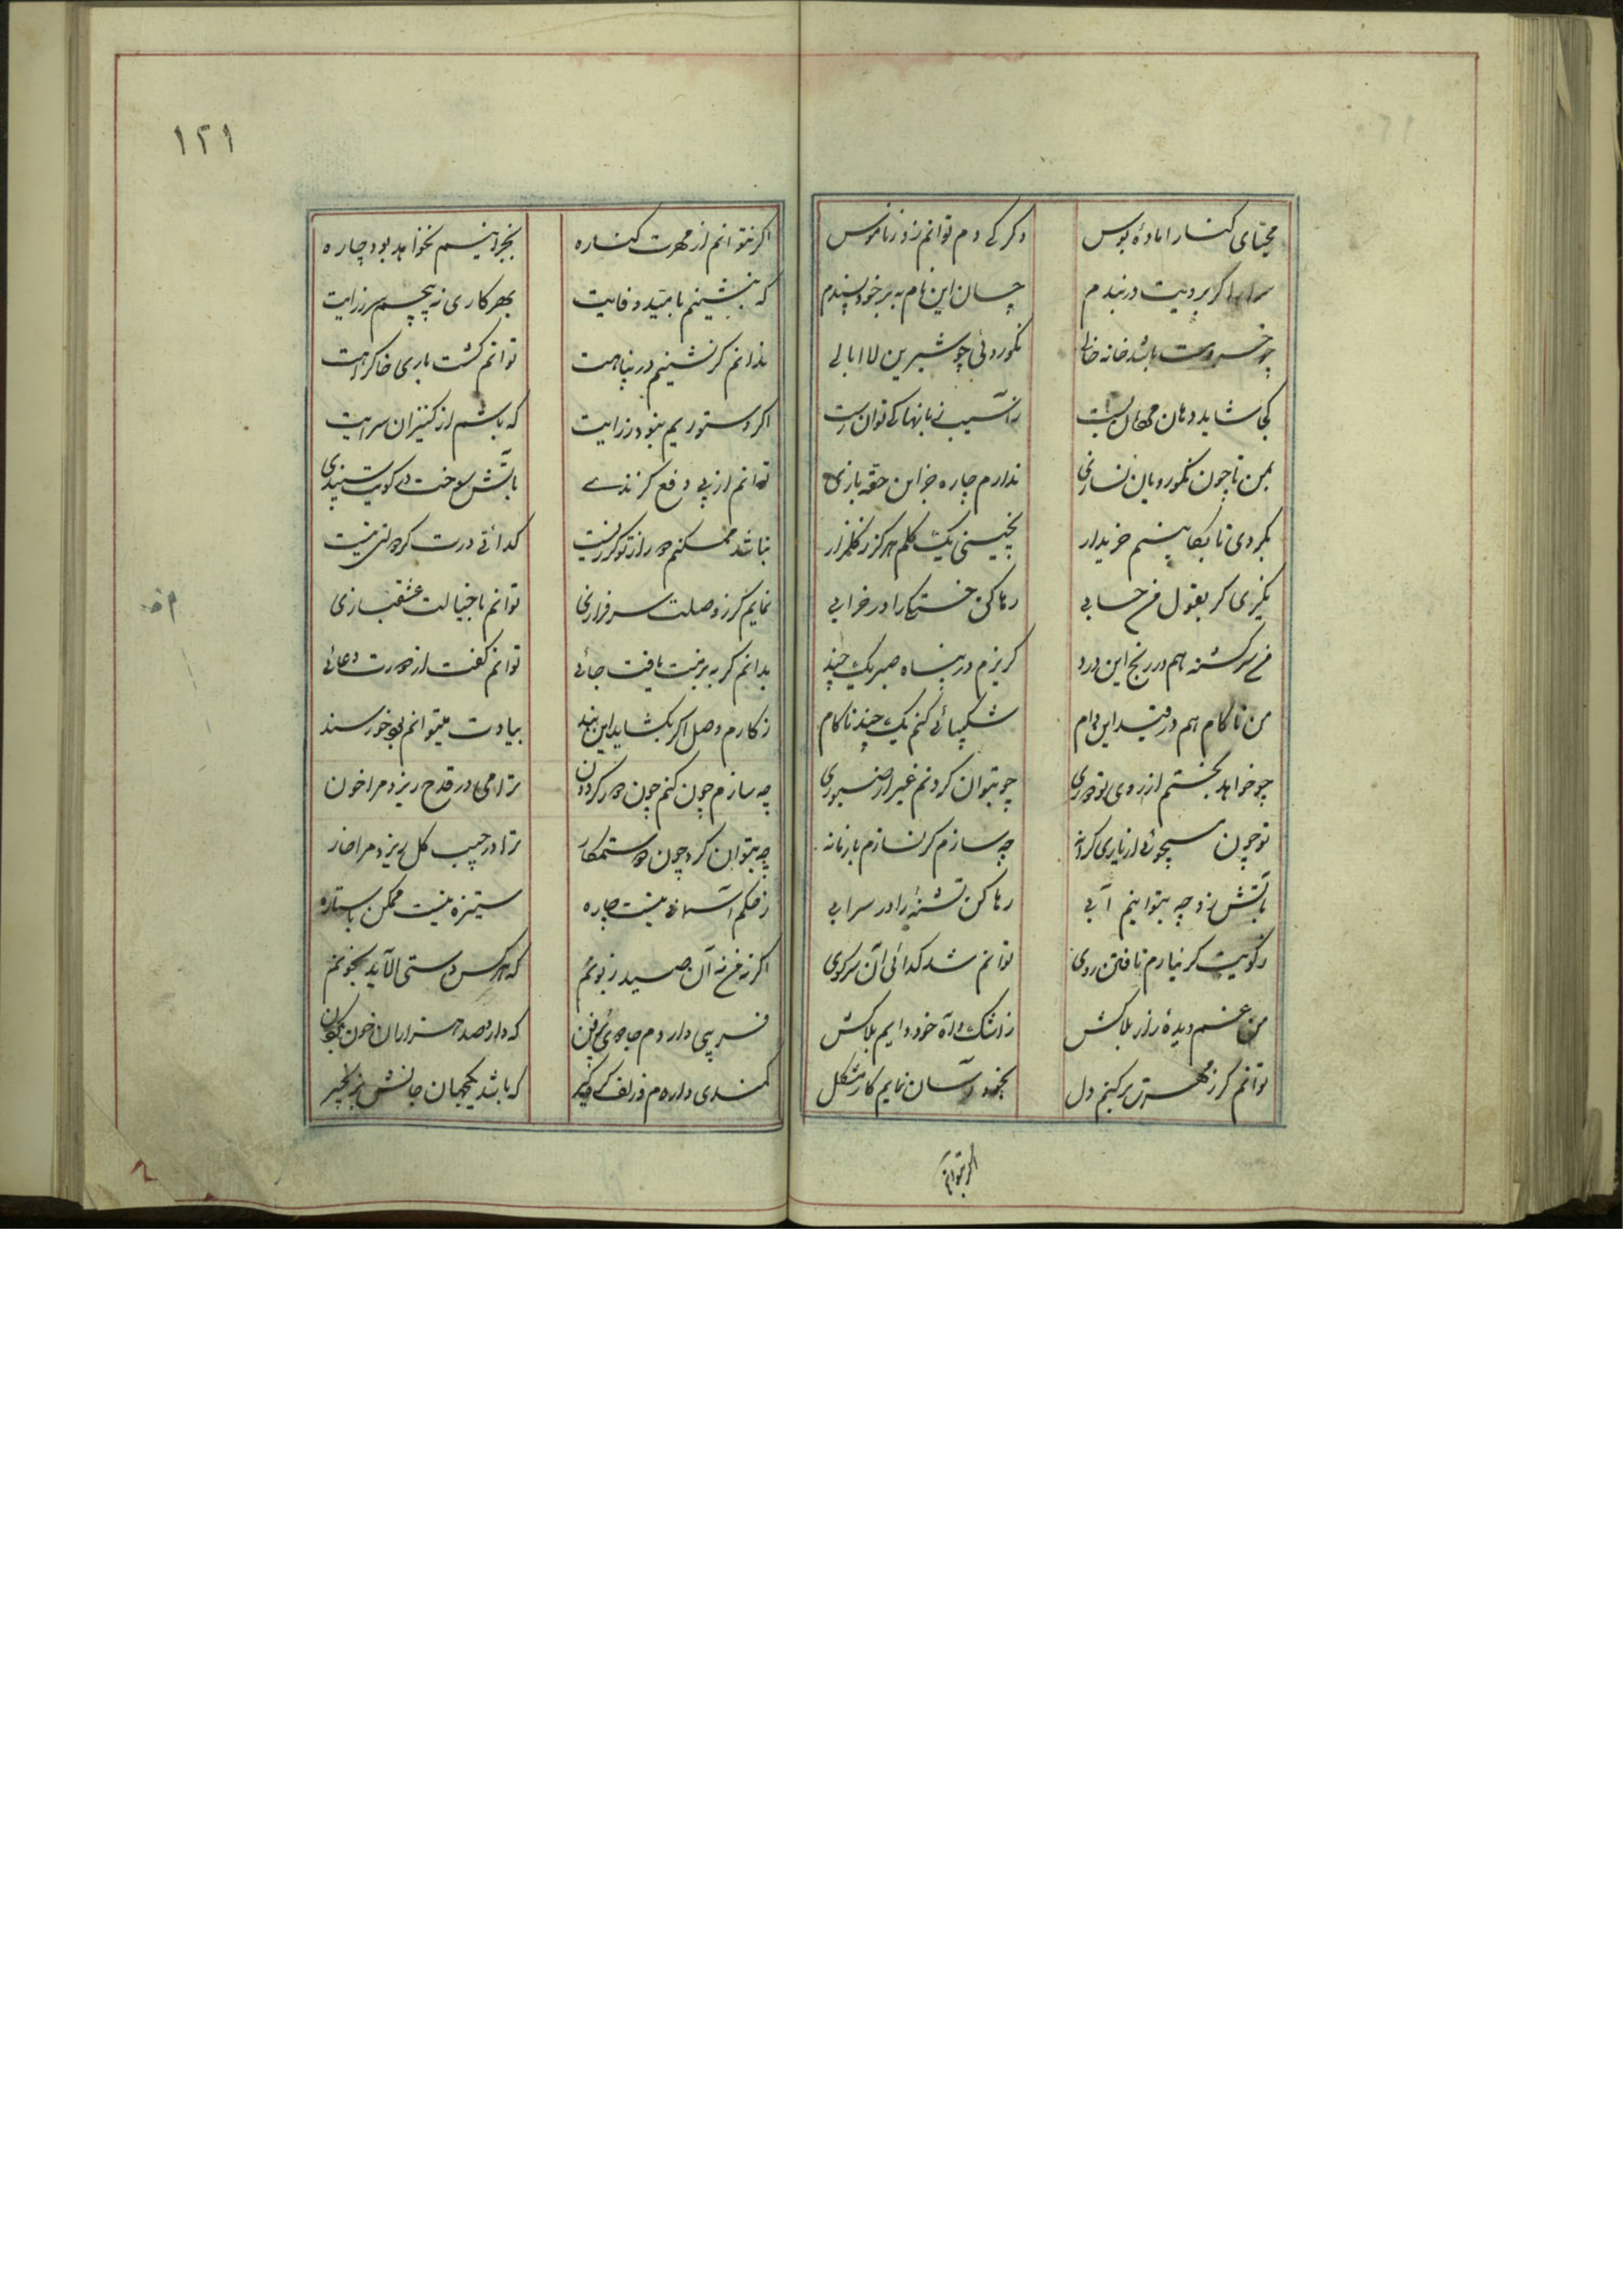 مهیای کنار امادهٔ بوس
دکر کی دم توانم زد ز ناموس
سرا را کر برویت در نبدم
چسان این نام بد بر خود پسندم
چو خسروت باشد خانه خالی
نکوروئی چو شیرین لاابالی
کجا شاید دهان مهمان بست
ز آسیب زبانها کی توان رست
بمن تا چون نکورویان نسازی
ندارم چاره جز این حقه بازی
نکردی تا بکابینم خریدار
نچینی یک کلم هرکز ز کلزار
نکیری کر بقول من حسابی
رها کن خسته را در خرابی
من سرکشته هم در رنج این درد
کریزم در پناه صبر یک چند
من ناکام هم در قید این دام
شکیبائی کنم یک چند ناکام
چو خواهد بختم از روی تو دوری
چه بتوان کردنم غیر از صبوری
تو چون سیچوئی از یاری کرانه
چه سازم کر نسازم با زمانه
بآتش زد چه بتوانیم آبی
رها کن تشنهٔ را در سرابی
ز کویت کر نیارم تافتن روی
توانم شد کدائی آن سرکوی
من غم دیدهٔ زار بلاکش
ز اشک و آه خود دایم بلاکش
توانم کر ز مهرت برکنم دل
بخود آسان نمایم کار مشکل
اکر نتوانم
۱۲۱
اکر نتوانم از مهرت کناره
بجز اینم نخواهد بود چاره
که بنشینم بامید وفایت
بهر کاری نه پیچم سر ز رایت
ندانم کر نشینم در پناهت
توانم کشت باری خاک راهت
اکر دستوریم نبود ز رایت
که باشم از کنیزان سرایت
توانم از پی دفع کزندی
بآتش سوخت در کویت سپندی
نباشد مسکنم در از تو کر نیست
کدائی درت کس نیست
نمایم کر ز وصلت سرفرازی
توانم با خیالت عشقبازی
ندانم کر به بزمت یافت جائی
توانم کفت از دورت دعائی
ز کارم وصل اکر نکشاید این بند
بیادت میتوانم بود خورسند
چه سازم چون کنم چون دور کردون
ترا می در قدح ریزد مرا خون
چه بتوان کرد چون ستمکار
ترا در جیب کل ریزد مرا خار
ز حکم آسمانی نیست چاره
ستیزه نیست ممکن با ستاره
اکر نه من نه آن صید زبونم
که هرکس دستی آلاید بخونم
فریبی دارد م جادوی پرفن
که دارد صد هزاران خون بکردن
کمندی دارم از زلف کره کیر
که باشد یکجهان جانش بزنجیر